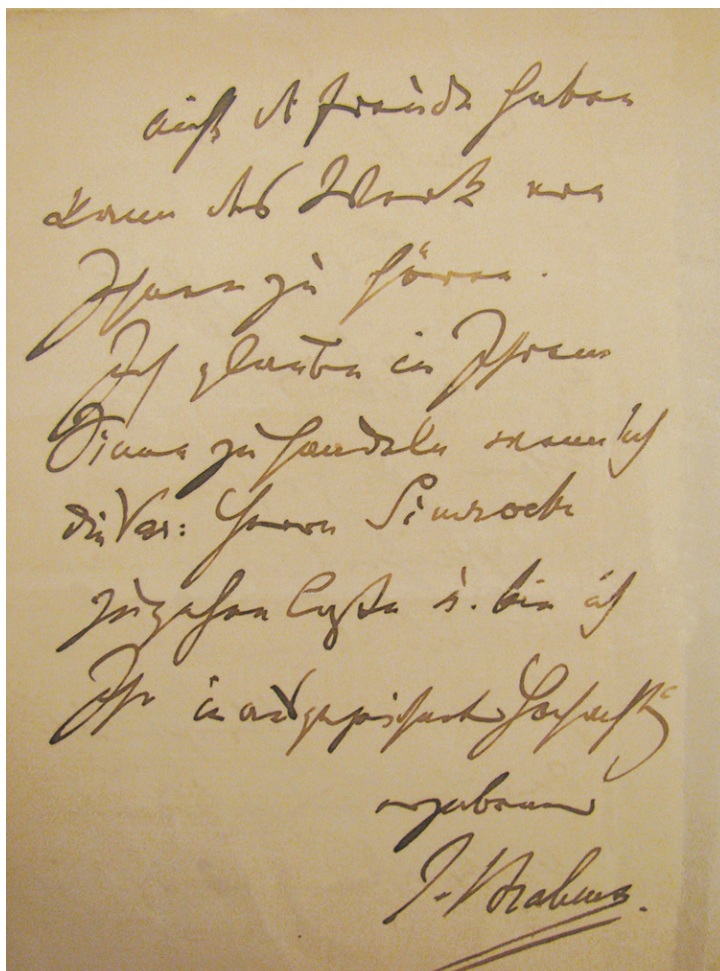 nicht die Freude haben
kann das Werk von
Ihnen zu hören.
Ich glaube in Ihrem
Sinne zu handeln wenn ich
die Var: Herrn Simrock
zugehen lasse u. bin ich
Ihr in ausgezeichneter Hochachtg
ergebener
J. Brahms.